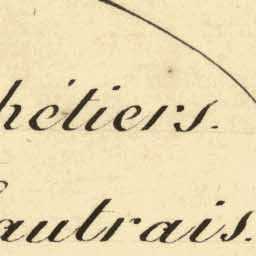 hétiers.
autrais.